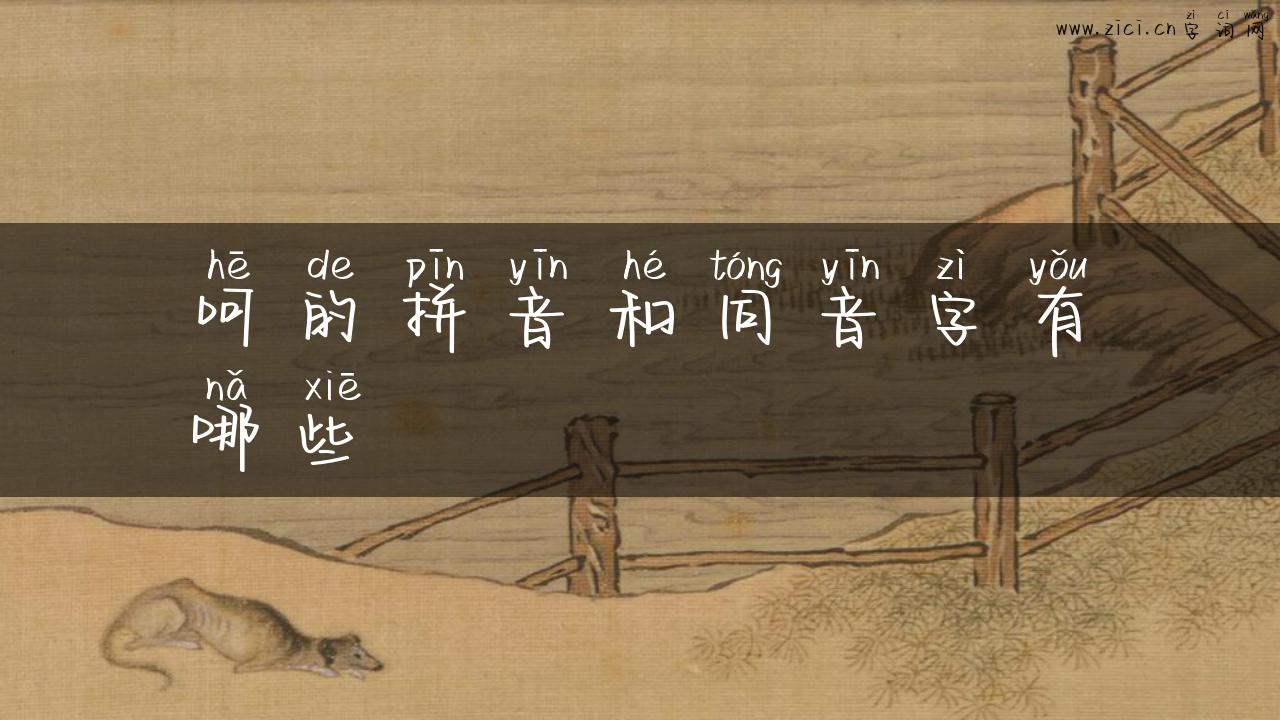 zì cí wǎng
www.zici.cn 字词网
hē de pīn yīn hé tóng yīn zì yǒu
呵的拼音和同音字有
nǎ xiē
哪些